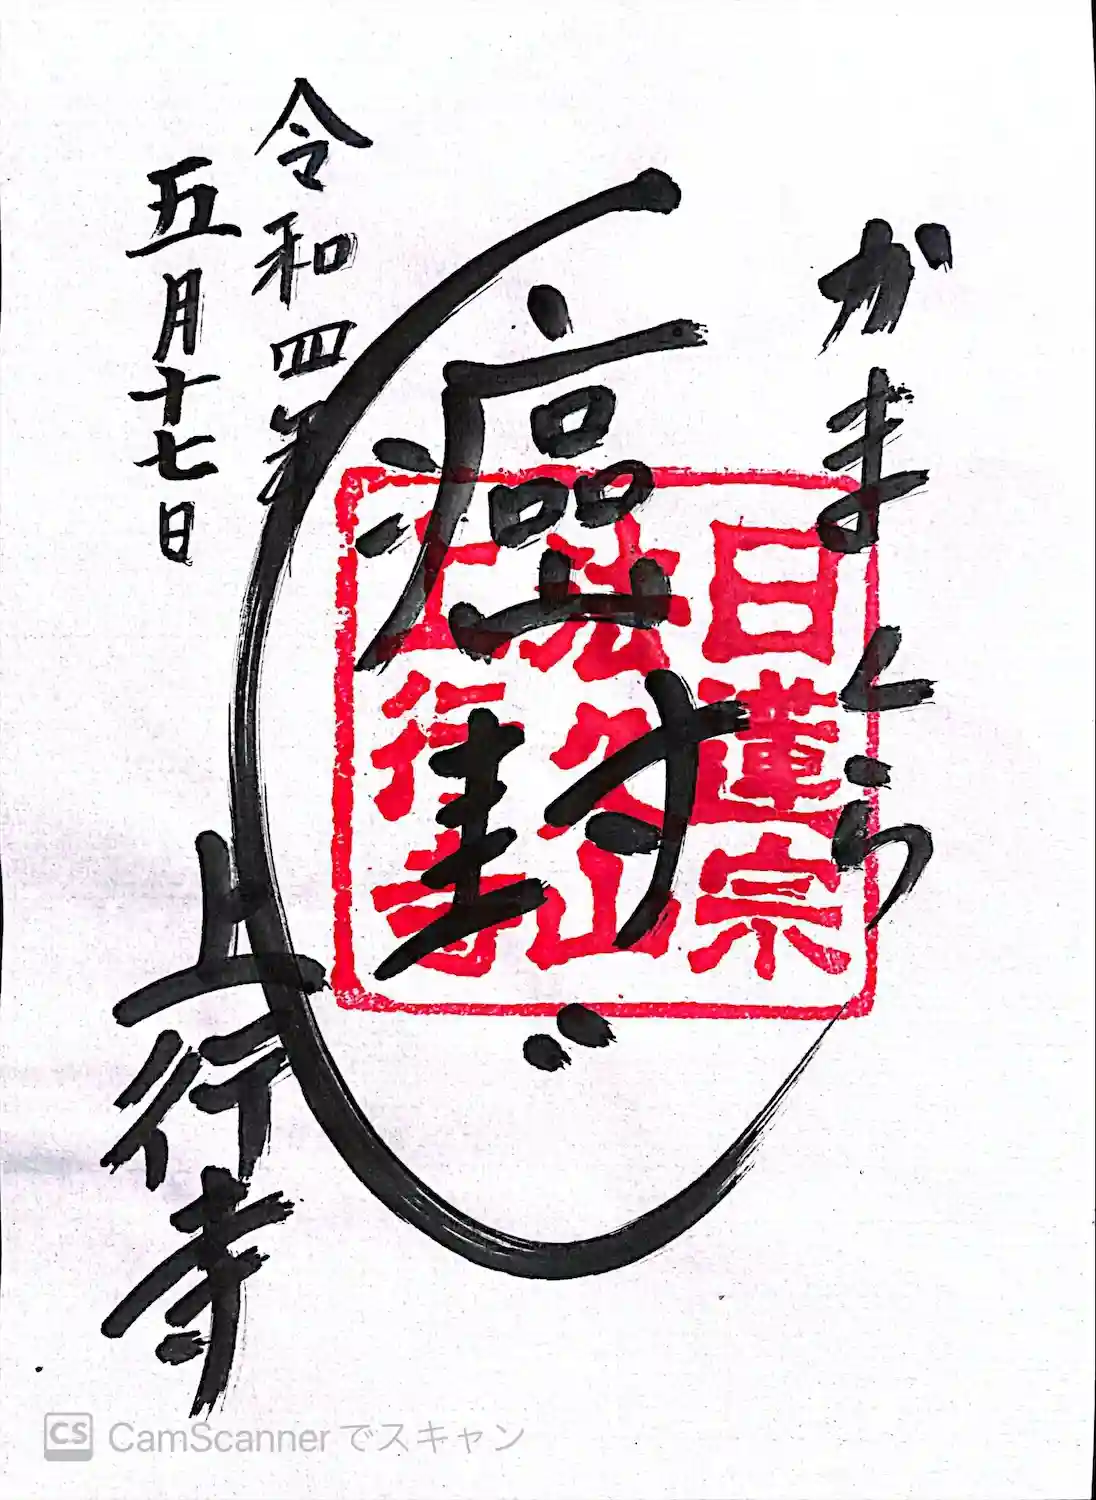 かまくら
癌封じ
令和四年
五月十七日
上行寺
日蓮宗
法久山
上行寺
CS CamScanner でスキャン